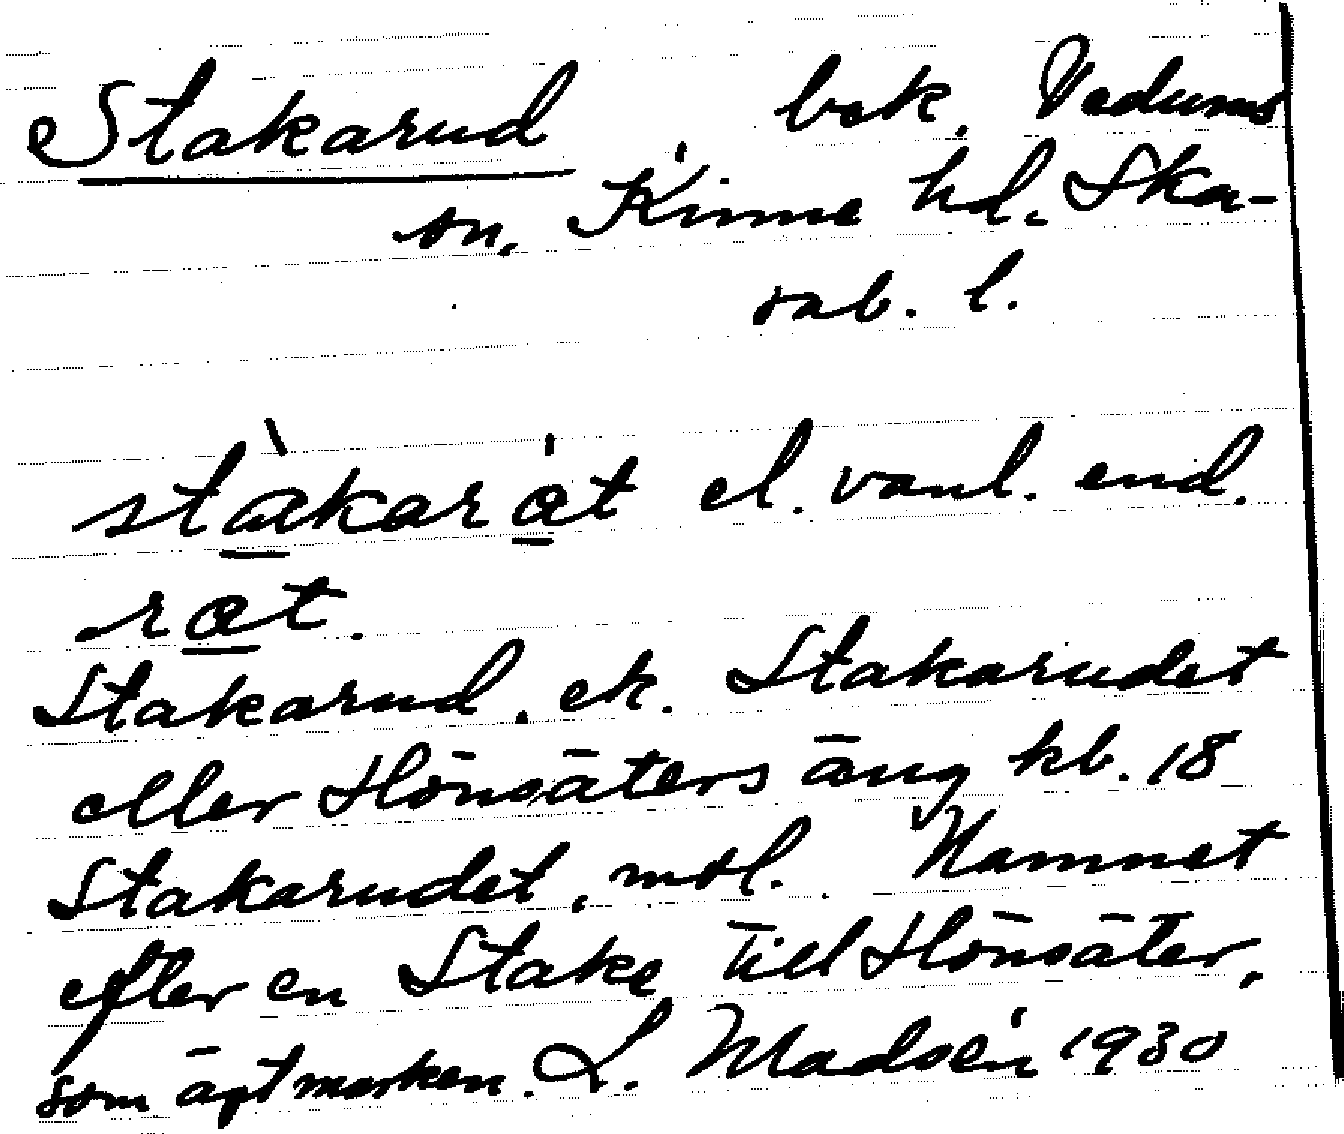 Stakarud, bsk. Vedums
sn, Kinne hd. Ska-
rab. l.
stàkarát el. vanl. end.
rat.
Stakarud, ek. Stakarudet
eller Hönsäters äng kb. 18
Stakarudet, mtl. Namnet
efter en Stake till Hönsäter,
som ägt marken. L. Madsén 1930